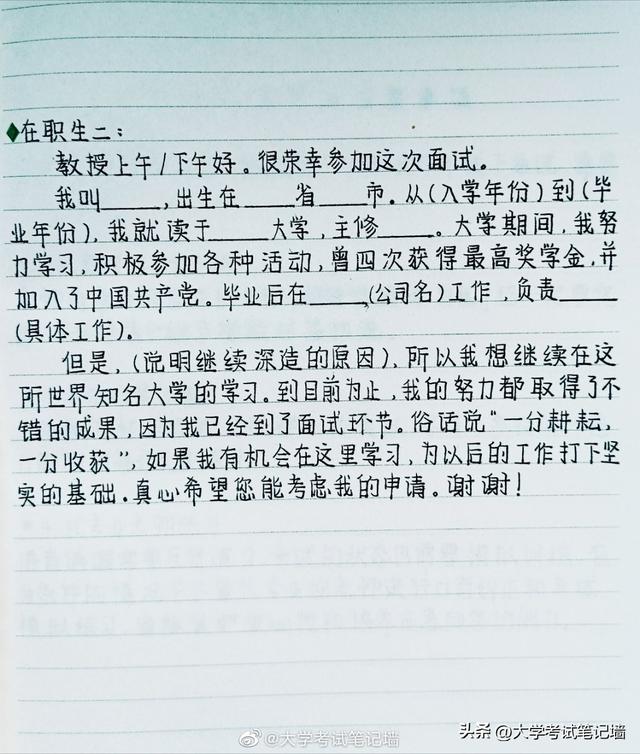 ◆在职生二：
教授上午/下午好。很荣幸参加这次面试。
我叫____,出生在____省____市。从(入学年份)到(毕
业年份),我就读于____大学,主修____。大学期间,我努
力学习,积极参加各种活动,曾四次获得最高奖学金,并
加入了中国共产党。毕业后在____(公司名)工作,负责____
(具体工作)。
但是,(说明继续深造的原因),所以我想继续在这
所世界知名大学的学习。到目前为止,我的努力都取得了不
错的成果,因为我已经到了面试环节。俗话说“一分耕耘,
一分收获”,如果我有机会在这里学习,为以后的工作打下坚
实的基础.真心希望您能考虑我的申请。谢谢!
@大学考试笔记墙
头条 @大学考试笔记墙